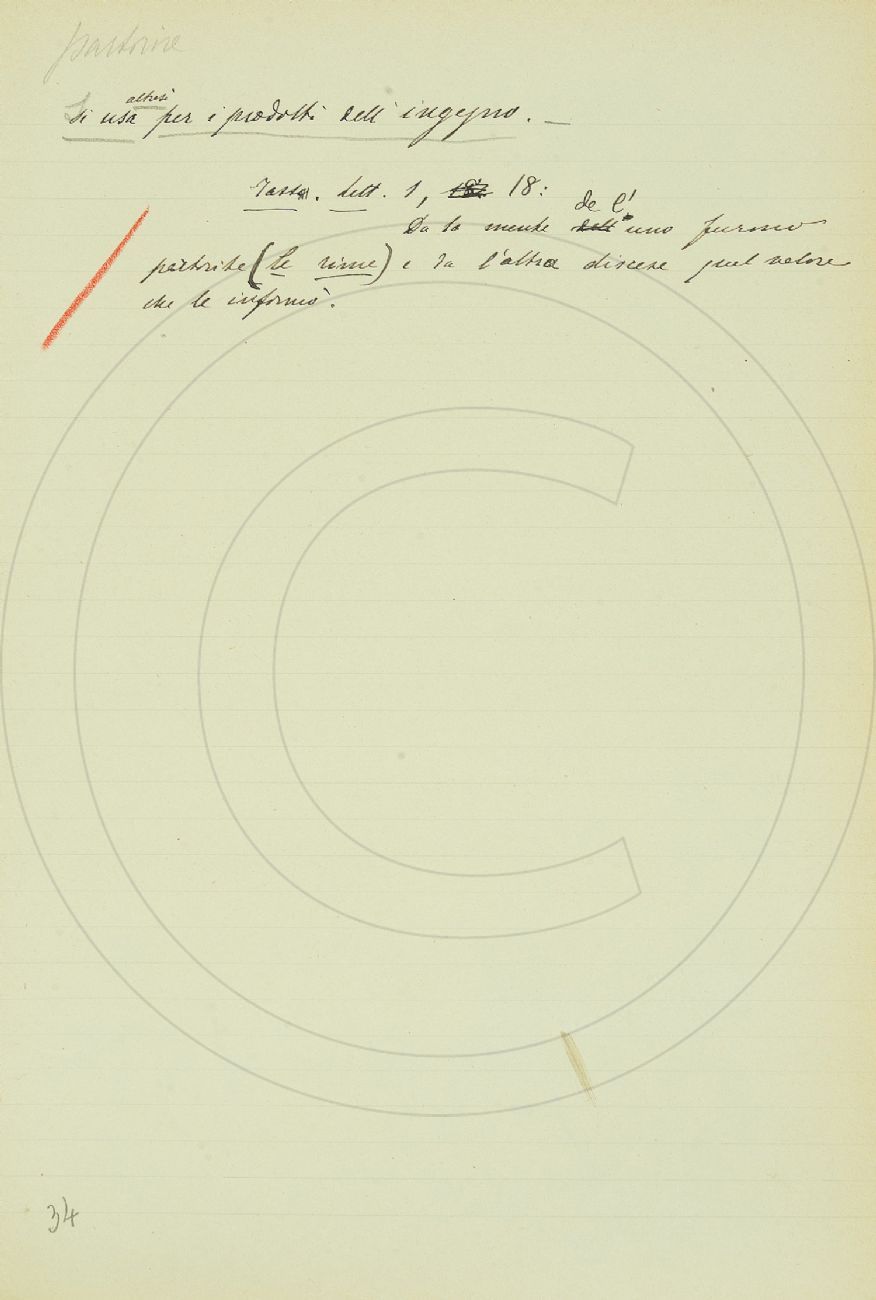 partorire
altresì
Si usa per i prodotti dell'ingegno. —
Tass. Lett. 1, 18:
de l'
Da la mente dell' uno furono
partorite (le rime) e da l'altra discese quel valore
che le informò.
34